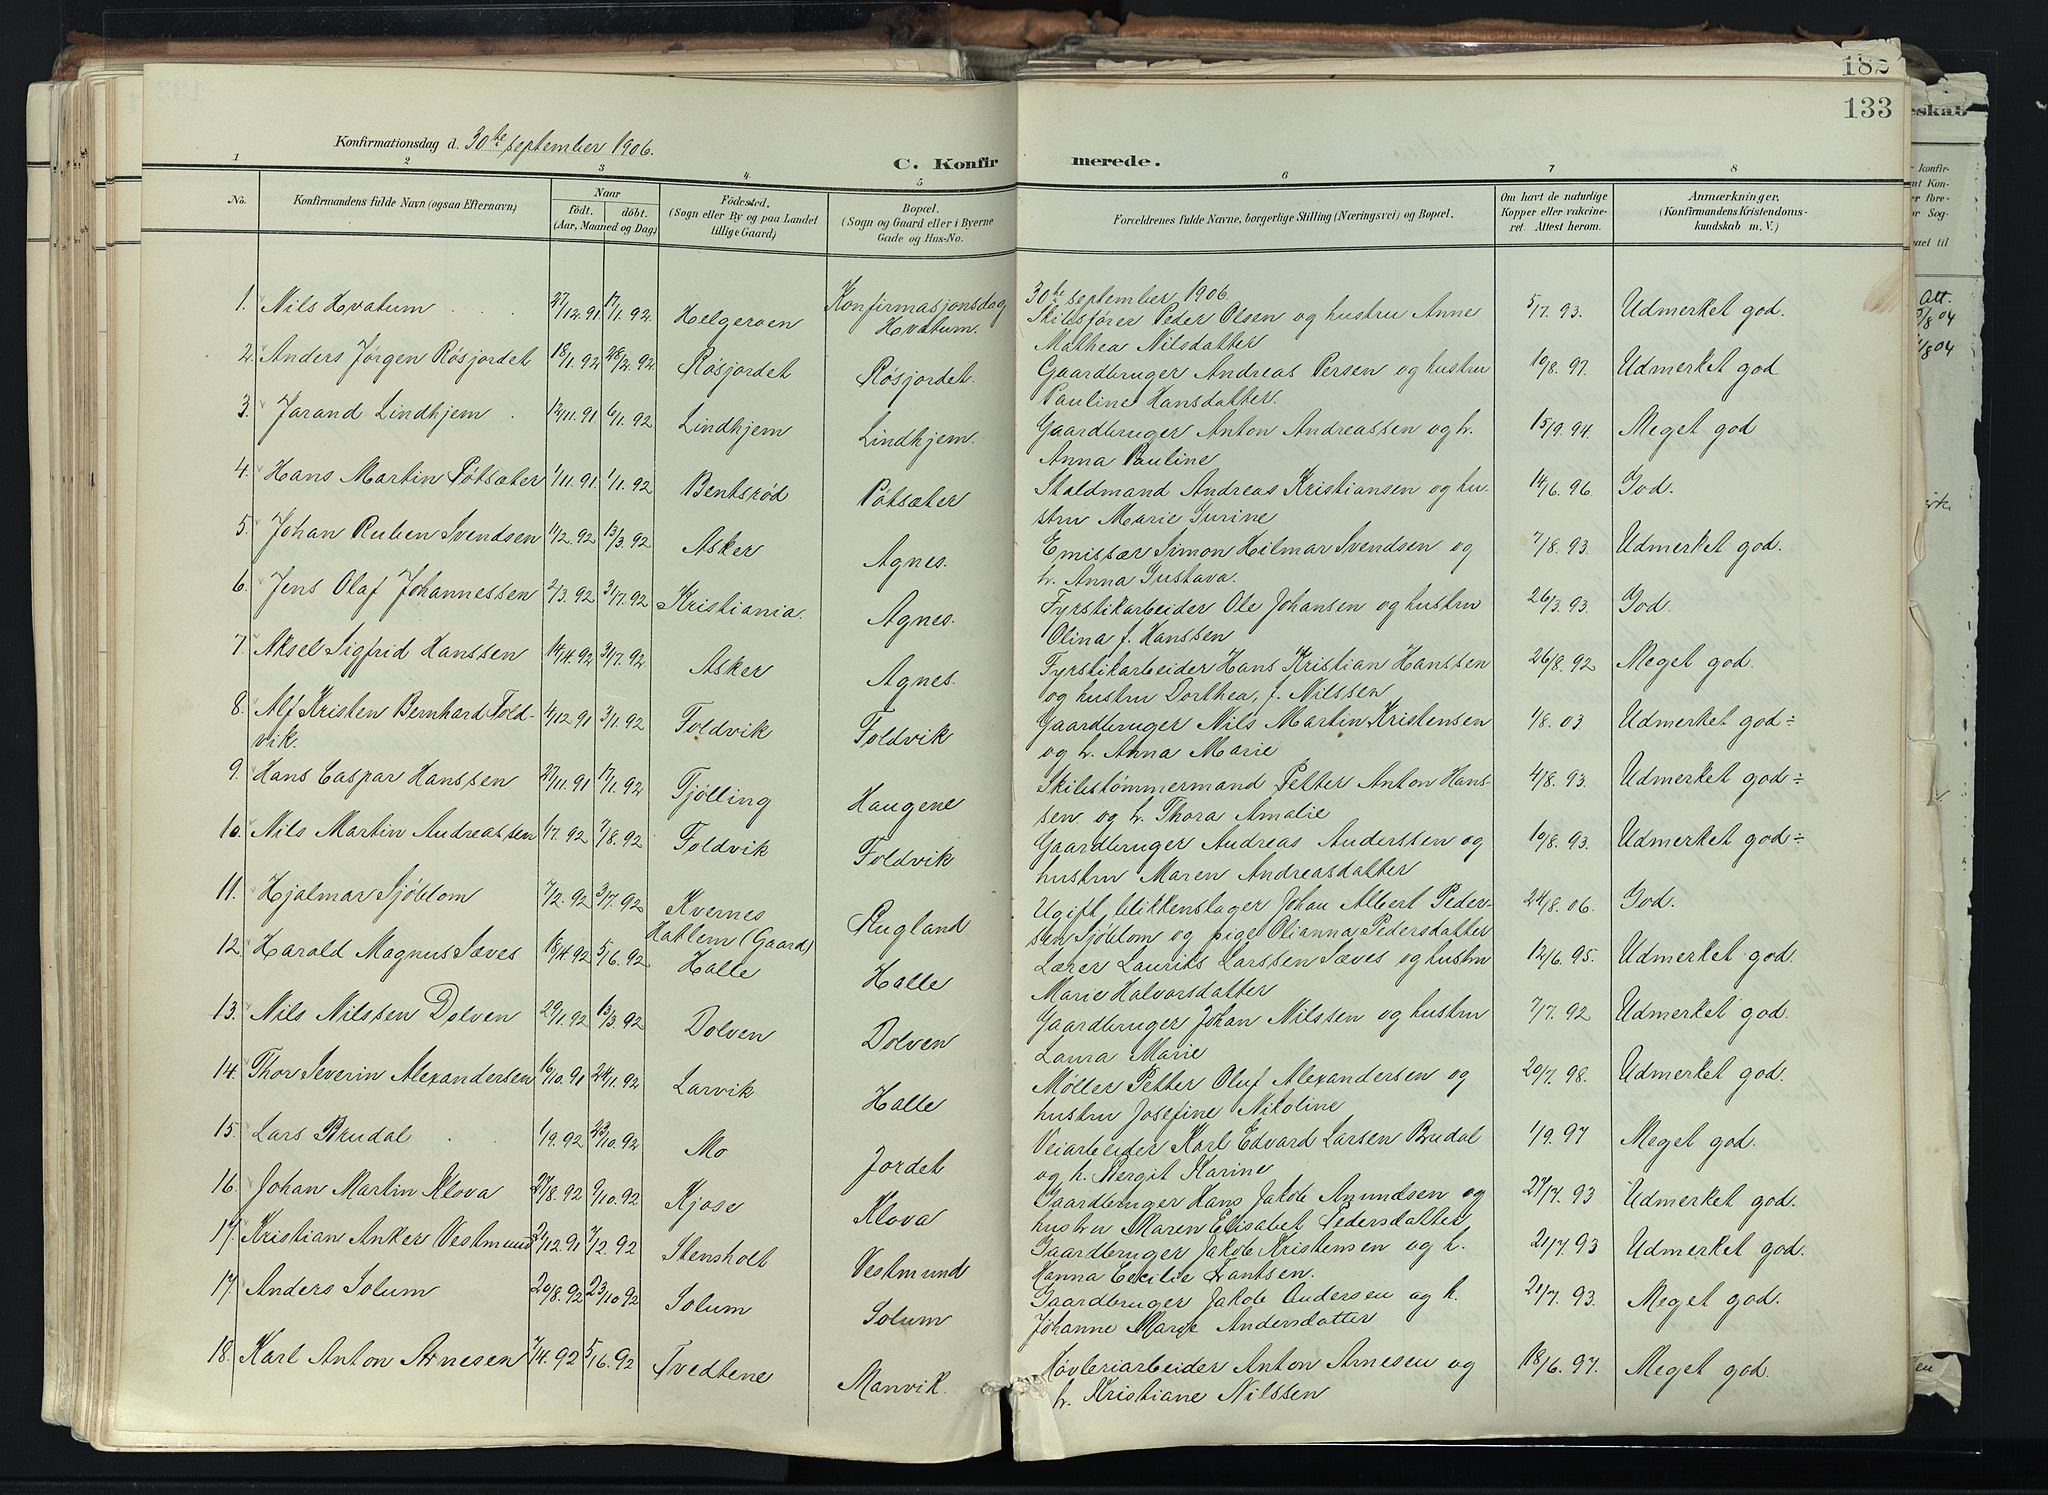 182
133
Konfirmationsdag d. 30te september 1906.
C. Konfirmerede.
1 2 3 4 5 6 7 8
No. Konfirmandens fulde Navn (ogsaa Efternavn) Naar født. døbt. (Aar, Maaned og Dag) Fødested. (Sogn eller By og paa Landet tillige Gaard) Bopæl. (Sogn og Gaard eller i Byerne Gade og Hus-No. Forældrenes fulde Navne, borgerlige Stilling (Næringsvei) og Bopæl. Om havt de naturlige Kopper eller vakcineret. Attest herom. Anmærkninger. (Konfirmandens Kristendomskundskab m. V.)
Konfirmasjonsdag 30te september 1906.
1. Nils Hvatum 27/12.91 17/1.92. Helgeroen Hvatum. Skibsfører Peder Olsen og hustru Anne 5/7. 93. Udmerket god.
Mathea Nilsdatter
2. Anders Jørgen Røsjordet 18/1.92 28/2.92. Røsjordet Røsjordet. Gaardbruger Andreas Persen og hustru 10/8. 97. Udmerket god
Pauline Hansdatter.
3. Jarand Lindhjem 12/11.91 6/1.92 Lindhjem Lindhjem. Gaardbruger Anton Andreassen og h. 15/9. 94. Meget god
Anna Pauline
4. Hans Martin Pøtsæter 1/11.91 1/1.92 Bentsrød Pøtsæter Staldmand Andreas Kristiansen og hu- 14/6. 96. God.
stru Marie Gurine
5. Johan Ruben Svendsen 1/2.92 13/3.92 Asker Agnes. Emissær Simon Hilmar Svendsen og 7/8. 93. Udmerket god.
h. Anna Gustava.
6. Jens Olaf Johannessen 2/3.92 31/7.92 Kristiania. Agnes. Fyrstikarbeider Ole Johansen og hustru 26/3. 93. God.
Olina f. Hanssen
7. Aksel Sigfrid Hanssen 14/4.92 31/7.92. Asker Agnes. Fyrstikarbeider Hans Kristian Hanssen 26/8. 92 Meget god.
og hustru Dorthea, f. Nilssen
8. Alf Kristen Bernhard Fold- 4/12.91 3/1.92 Foldvik Foldvik Gaardbruger Nils Martin Kristensen 4/8. 03 Udmerket god ÷
vik. og h. Anna Marie
9. Hans Caspar Hanssen 27/11.91 17/1.92 Tjølling Haugene Skibstømmermand Petter Anton Hans- 4/8. 93. Udmerket god ÷
sen og h. Thora Amalie
10. Nils Martin Andreassen 1/7.92 7/8.92 Foldvik Foldvik Gaardbruger Andreas Anderssen og 10/8. 93. Udmerket god ÷
hustru Maren Andreasdatter
11. Hjalmar Sjøblom 7/2.92 3/7.92 Kvernes Rugland Ugift blikkenslager Johan Albert Peder- 24/8. 06. God.
Hatlem (Gaard) sen Sjøblom og pige Olianna Pedersdatter
12. Harald Magnus Sæves 18/4.92 5/6.92 Halle Halle Lærer Laurits Larssen Sæves og hustru 12/6. 95. Udmerket god.
Marie Halvorsdatter
13. Nils Nilssen Dolven 29/1.92 13/3.92 Dolven Dolven Gaardbruger Johan Nilssen og hustru 7/7. 92 Udmerket god.
Laura Marie
14. Thor Severin Alexandersen 16/10.91 24/1.92 Larvik Halle Møller Petter Oluf Alexandersen og 20/7. 98. Udmerket god.
hustru Josefine Nikoline
15. Lars Brudal 1/9.92 23/10.92 Mo Jordet Veiarbeider Karl Edvard Larsen Brudal 1/9. 97 Meget god.
og h. Bergit Karine
16. Johan Martin Klova 27/8.92 9/10.92 Kjose Klova Gaardbruger Hans Jakob Amundsen og 27/7. 93 Udmerket god.
hustru Maren Elisabet Pedersdatter
17. Kristian Anker Vestmund 21/12.91 7/2.92 Stensholt Vestmund Gaardbruger Jakob Kristensen og h. 21/7. 93 Udmerket god.
Hanna Cecilie Frantsen.
17. Anders Solum 20/8.92 23/10 92 Solum Solum Gaardbruger Jakob Andersen og h. 21/7. 93. Meget god.
Johanne Marie Andersdatter
18. Karl Anton Arnesen 7/4.92 5/16.92 Tvedtene Manvik. Høvleriarbeider Anton Arnesen og 18/6. 97. Meget god.
h. Kristiane Nilssen